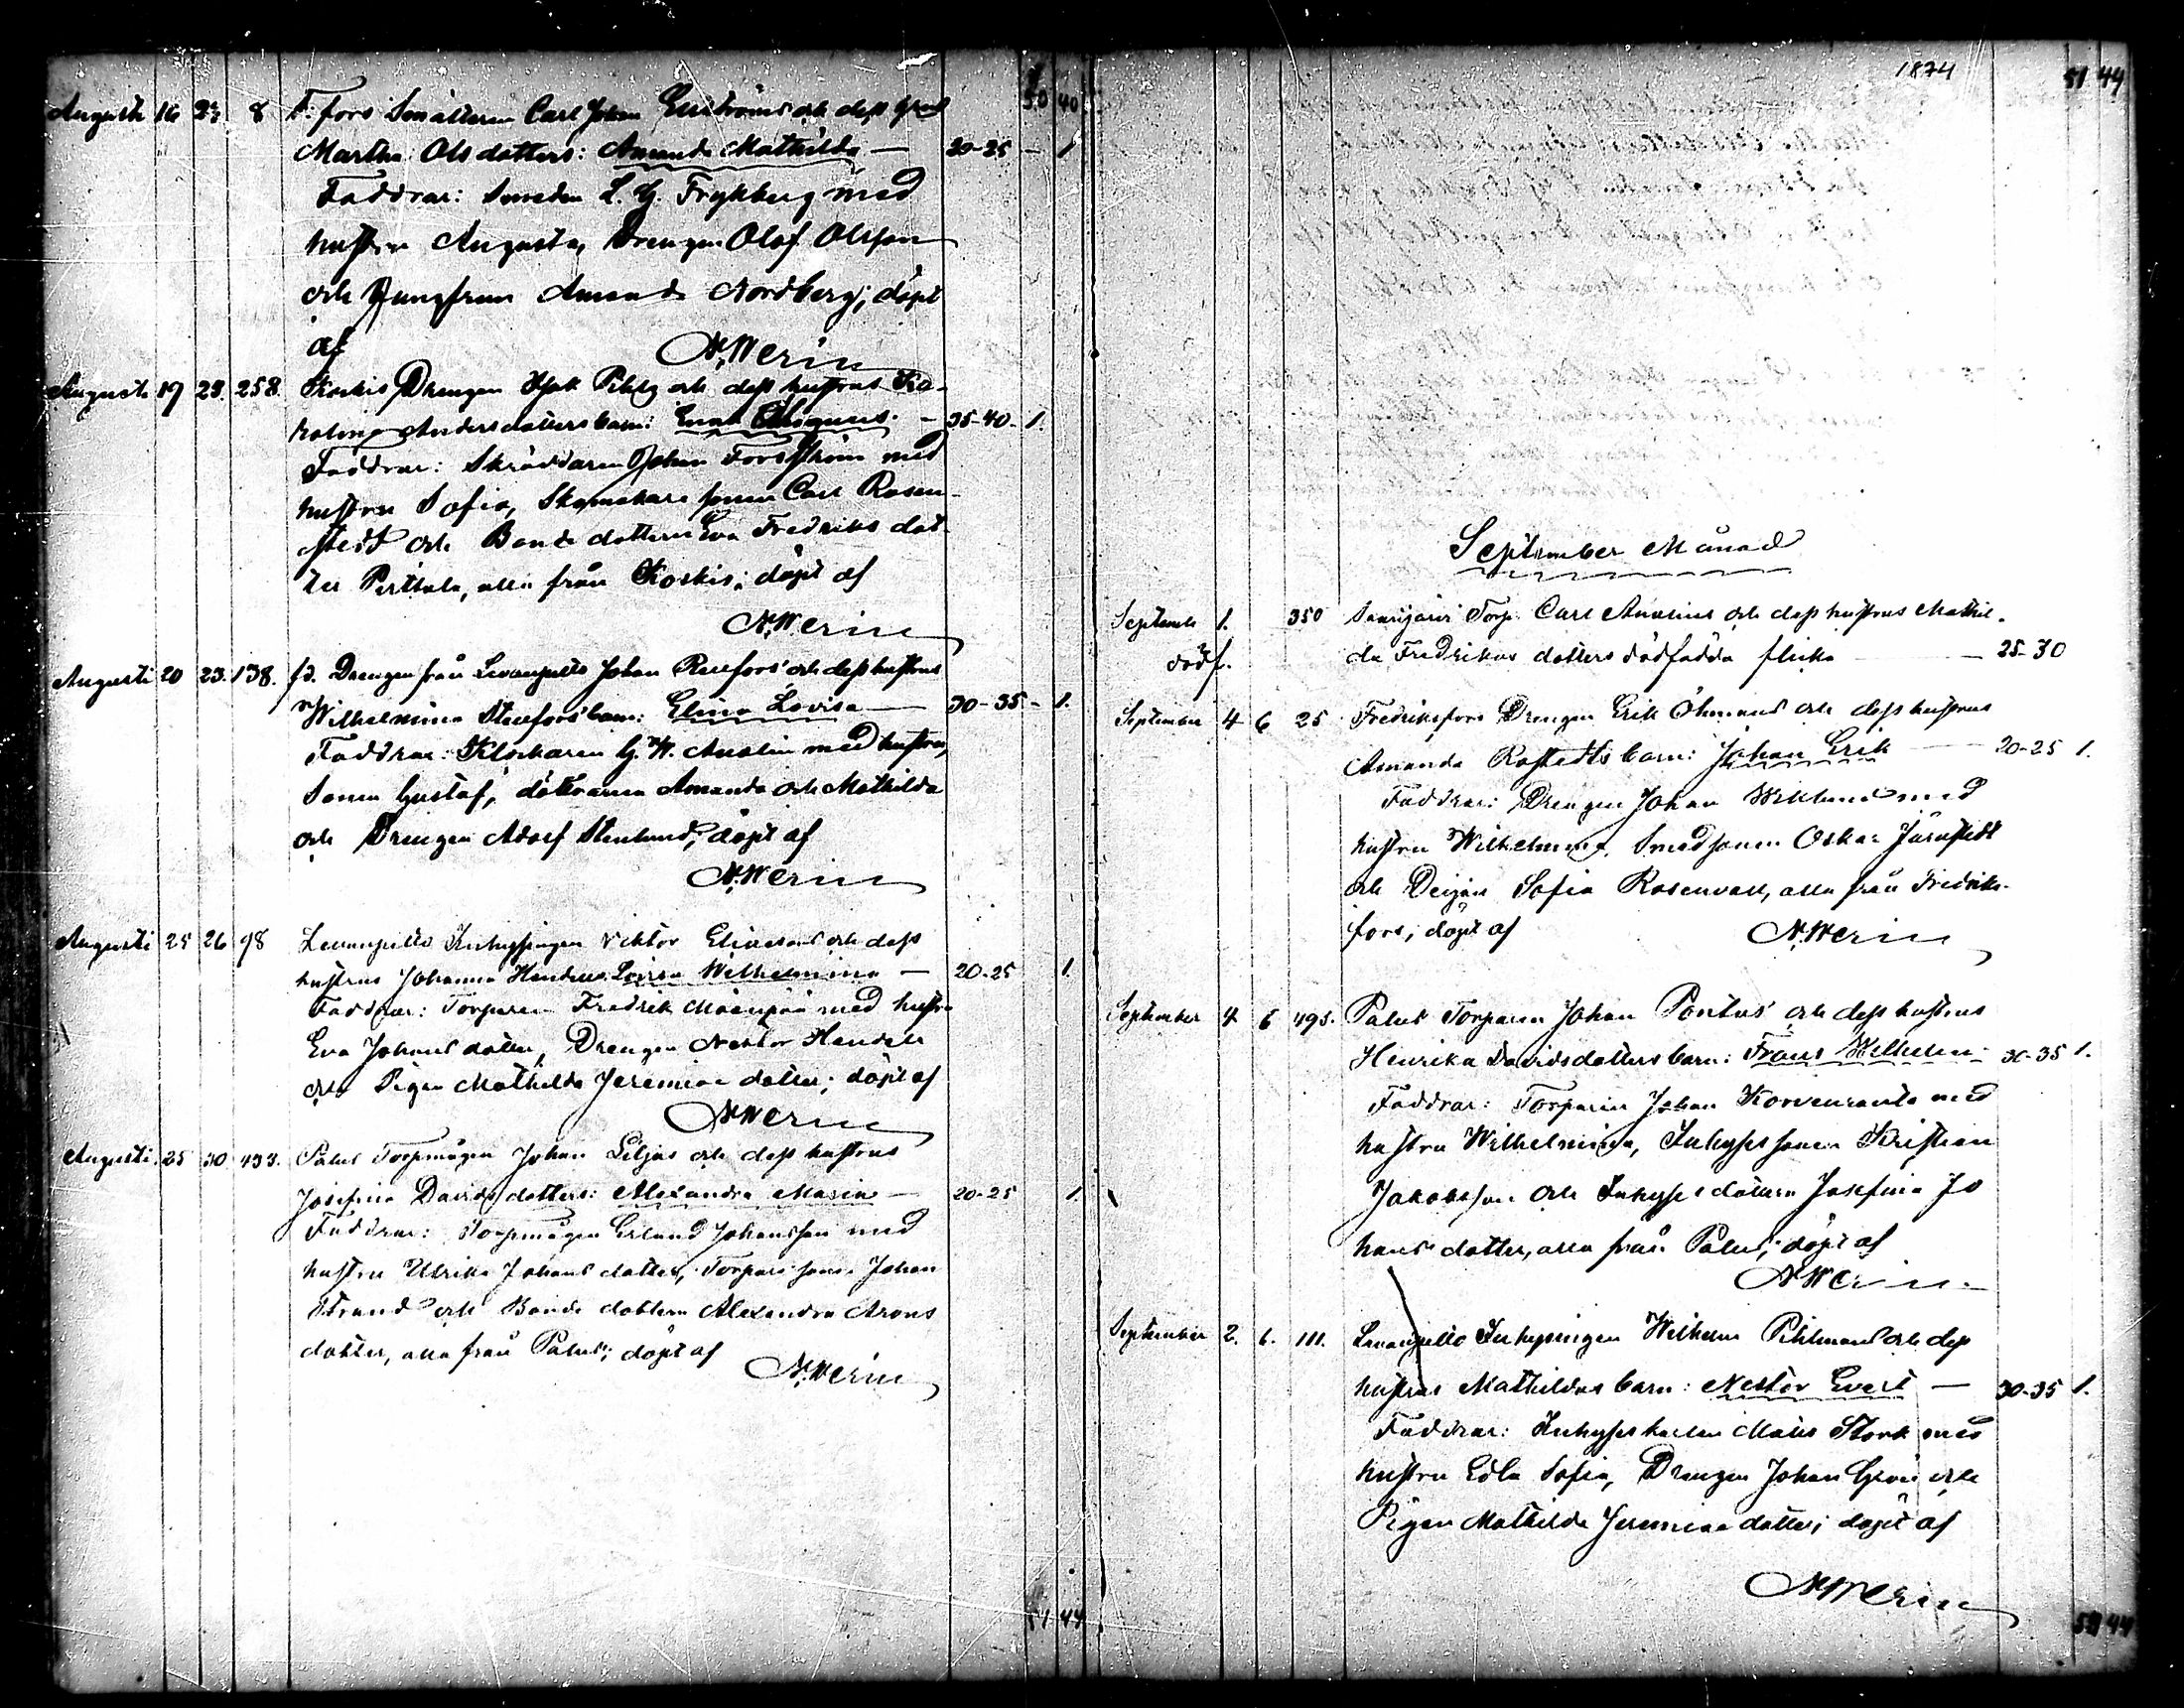 50 40
Augusti 16 23 8 F. fors Smältaren Carl Johan Enströms och dess hust
Martha Olsdotters: Amanda Mathilda — 20-25 — 1
Faddrar: Smeden L. G. Frykberg med
hustru Augusta, Drengen Olof Olsson
och Jungfrun Amanda Nordberg; döpt
af N. Werin
Augusti 17 23. 258. Koskis Drengen Isak Pihlg och dess hustrus Ka-
rolina Andersdotters barn: Magnus — 35-40. 1.
Faddrar: Skräddaren Johan Forsström med
hustru Sofia, Skomakare sonen Carl Rosen-
stedt och Bonde dottern Eva Fredriks dot-
ter Perttala, alla från Koskis; döpt af
N. Werin
Augusti 20 23. 138. fd. Drengen från Levanpelto Johan Renfors och dess hustrus
Wilhelmina Stenfors barn: Elina Lovisa — 30-35 - 1.
Faddrar: Klockaren G. W. Anolin med hustru,
Sonen Gustaf, döttrarna Amanda och Mathilda
och Drengen Adolf Stenlund, döpt af
N. Werin
Augusti 25 26 98 Levanpelto Inhysingen Viktor Eliassons och dess
hustrus Johanna Hendells Lovisa Wilhelmina — 20-25 1.
Faddrar: Torparen Fredrik Mäenpää med hustru
Eva Johans dotter, Drengen Nestor Handell
och Pigan Mathilda Jeremiae dotter; döpt af
N. Werin
Augusti 25 30 433. Palus Torpmågen Johan Liljas och dess hustrus
Josefina Davidsdotters: Alexandra Maria — 20-25 1.
Faddrar: Torpmågen Erland Johansson med
hustru Ulrika Johans dotter, Torpare sonen Johan
Strand och Bonde dottern Alexandra Arons
dotter, alla från Palus; döpt af
N. Werin
51 44
1874 51 44
September Månad
Septemb 1. 350 Torp. Carl Anolins och dess hustrus Mathil-
dödf. da Fredrikas dotters dödfödda flicka — 25-30
September 4 6 25 Fredriksfors Drengen Erik Öhmans och dess hustrus
Amanda Rostedts barn: Johan Erik — 20-25 1.
Faddrar: Drengen Johan Wiklund med
hustru Wilhelmina, Smedsonen Oskar Järnstedt
och Deijan Sofia Rosenvall, alla från Fredriks-
fors; döpt af N. Werin
September 4 6 495. Palus Torparen Johan Pontus och dess hustrus
Henrika Davidsdotters barn: Frans Wilhelm — 30-35 1.
Faddrar: Torparen Johan Korvenranta med
hustru Wilhelmina, Inhyses sonen Kristian
Jakobsson och Inhyses dottern Josefina Jo
hans dotter, alla från Palus; döpt af
N. Werin
September 2. 6. 111. Levanpelto Inhysingen Wilhelm Pihlmans och dess
hustrus Mathildas barn: Nestor Evert — 30-35 1.
Faddrar: Inhyses karlen Mats Stork med
hustru Edla Sofia, Drengen Johan Grön och
Pigan Mathilda Jeremiae dotter; döpt af
N. Werin
54 44